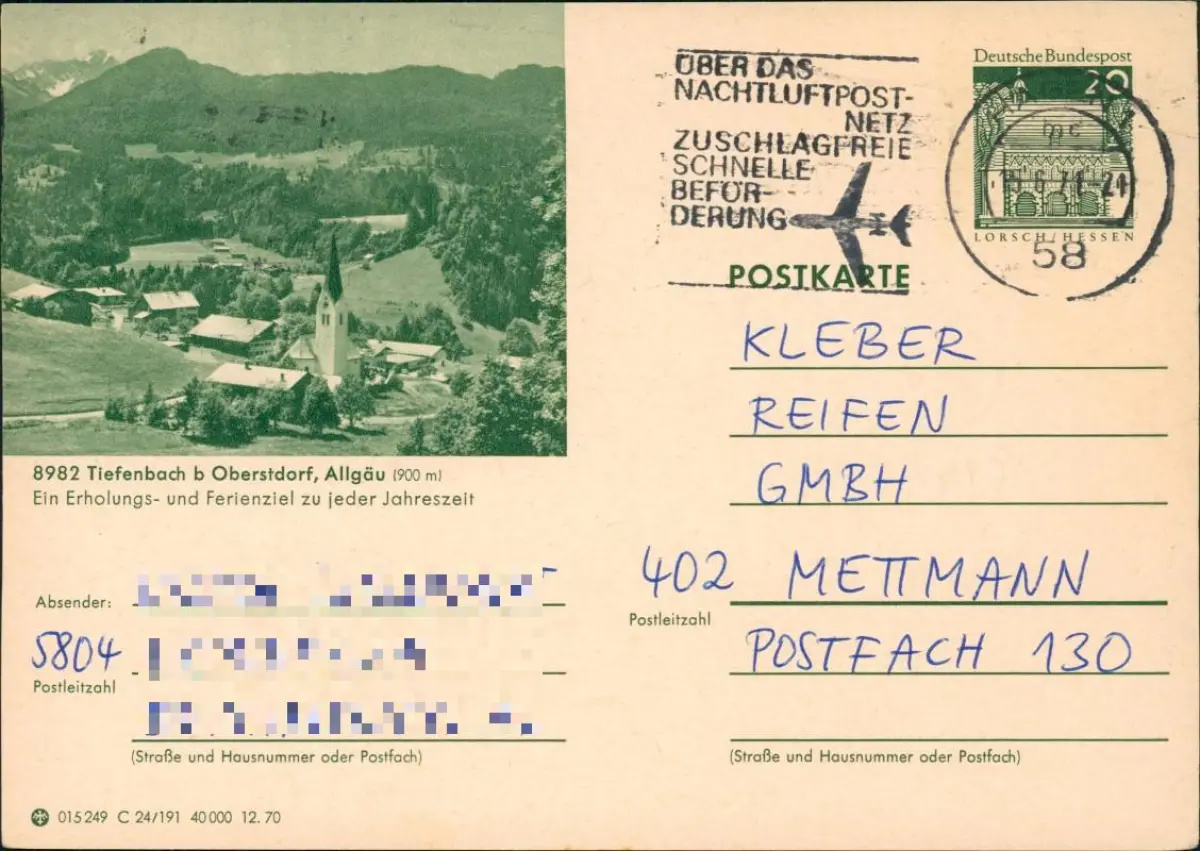 ÜBER DAS
NACHTLUFTPOST-
NETZ
ZUSCHLAGFREIE
SCHNELLE
BEFÖR-
DERUNG
Deutsche Bundespost
20
mc
21
LORSCH/HESSEN
58
POSTKARTE
KLEBER
REIFEN
GMBH
402 METTMANN
Postleitzahl
POSTFACH 130
(Straße und Hausnummer oder Postfach)
8982 Tiefenbach b Oberstdorf, Allgäu (900 m)
Ein Erholungs- und Ferienziel zu jeder Jahreszeit
Absender:
5804
Postleitzahl
(Straße und Hausnummer oder Postfach)
015249 C 24/191 40000 12.70